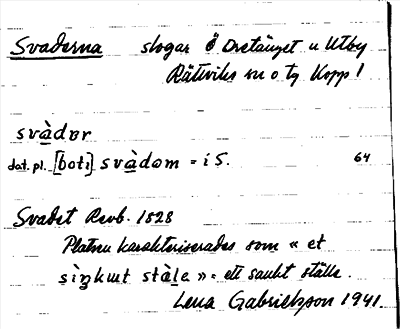 Svaderna slogar Ö Dretänget u Utby
Rättviks sn o tg Kopp l
svàdər
dat.pl. [boti] svàdom = i S. 64
Svadet Revb. 1828
Platsen karaktäriserades som « et
siŋkut stàle » = ett sankt ställe.
Lena Gabrielsson 1941